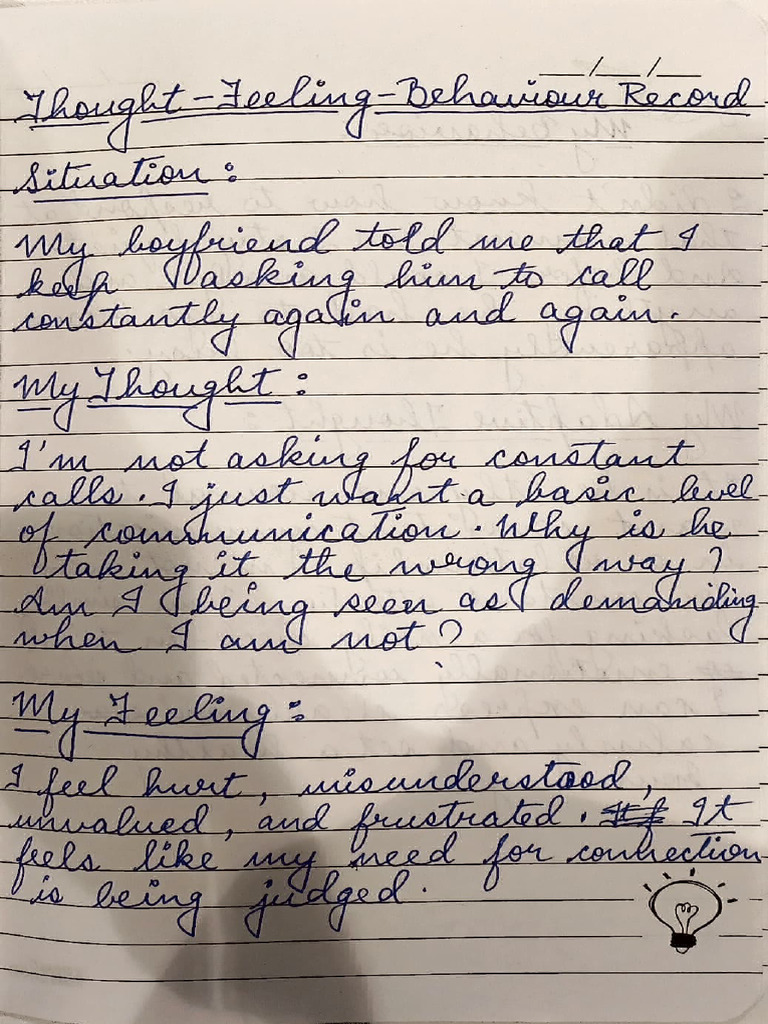 __/__/__
Thought-Feeling-Behaviour Record
Situation :
My boyfriend told me that I
keep asking him to call
constantly again and again.
My Thought :
I'm not asking for constant
calls. I just want a basic level
of communication. Why is he
taking it the wrong way?
Am I being seen as demanding
when I am not?
My Feeling :
I feel hurt, misunderstood,
unvalued, and frustrated. It
feels like my need for connection
is being judged.